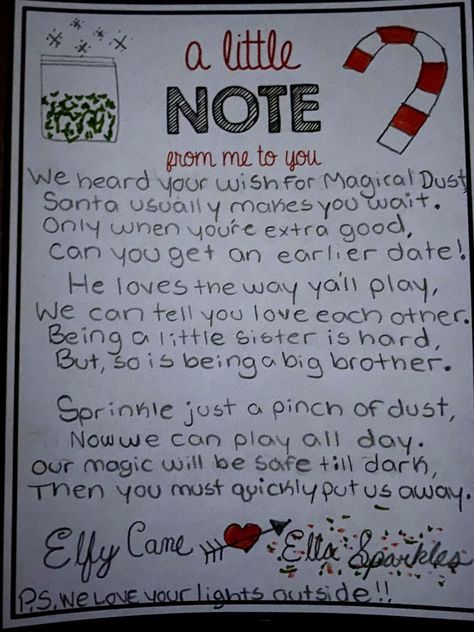 a little
NOTE
from me to you
We heard your wish for Magical Dust
Santa usually makes you wait.
Only when you're extra good,
Can you get an earlier date!
He loves the way ya'll play,
We can tell you love each other.
Being a little sister is hard,
But, so is being a big brother.
Sprinkle just a pinch of dust,
Now we can play all day.
Our magic will be safe till dark,
Then you must quickly put us away.
Elfy Cane Ella Sparkles
P.S. We love your lights outside!!